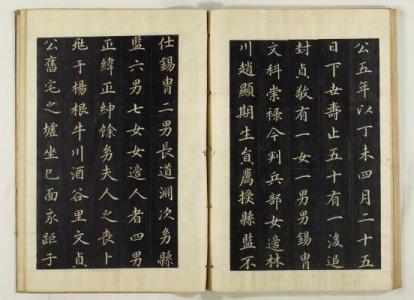 公五年以丁未四月二十五
日下世壽止五十有一後追
封貞敬有一女一男男錫胄
文科崇禄今判兵部女適林
川趙顯期生員薦授縣監不
仕錫胄二男長道淵次幼縣
監六男七女女適人者四男
正緯正紳餘幼夫人之喪卜
兆于楊根牛川酒谷里文貞
公舊宅之墟坐巳面亥距于